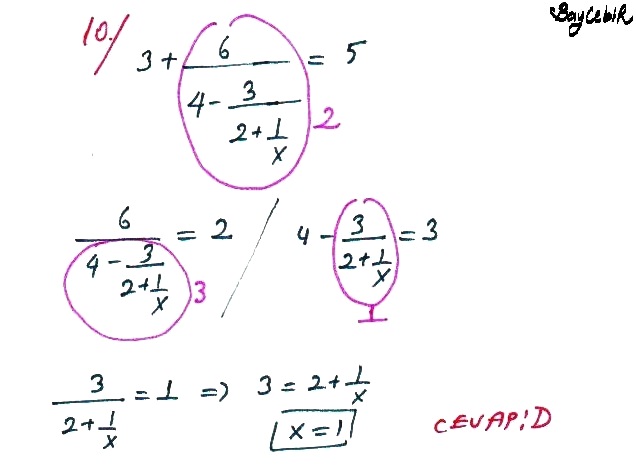 BayCebiR
10./ 3 + 6 / (4 - 3 / (2 + 1/x)) = 5
2
6 / (4 - 3 / (2 + 1/x)) = 2 / 4 - 3 / (2 + 1/x) = 3
3
1
3 / (2 + 1/x) = 1 => 3 = 2 + 1/x
x = 1
CEVAP: D